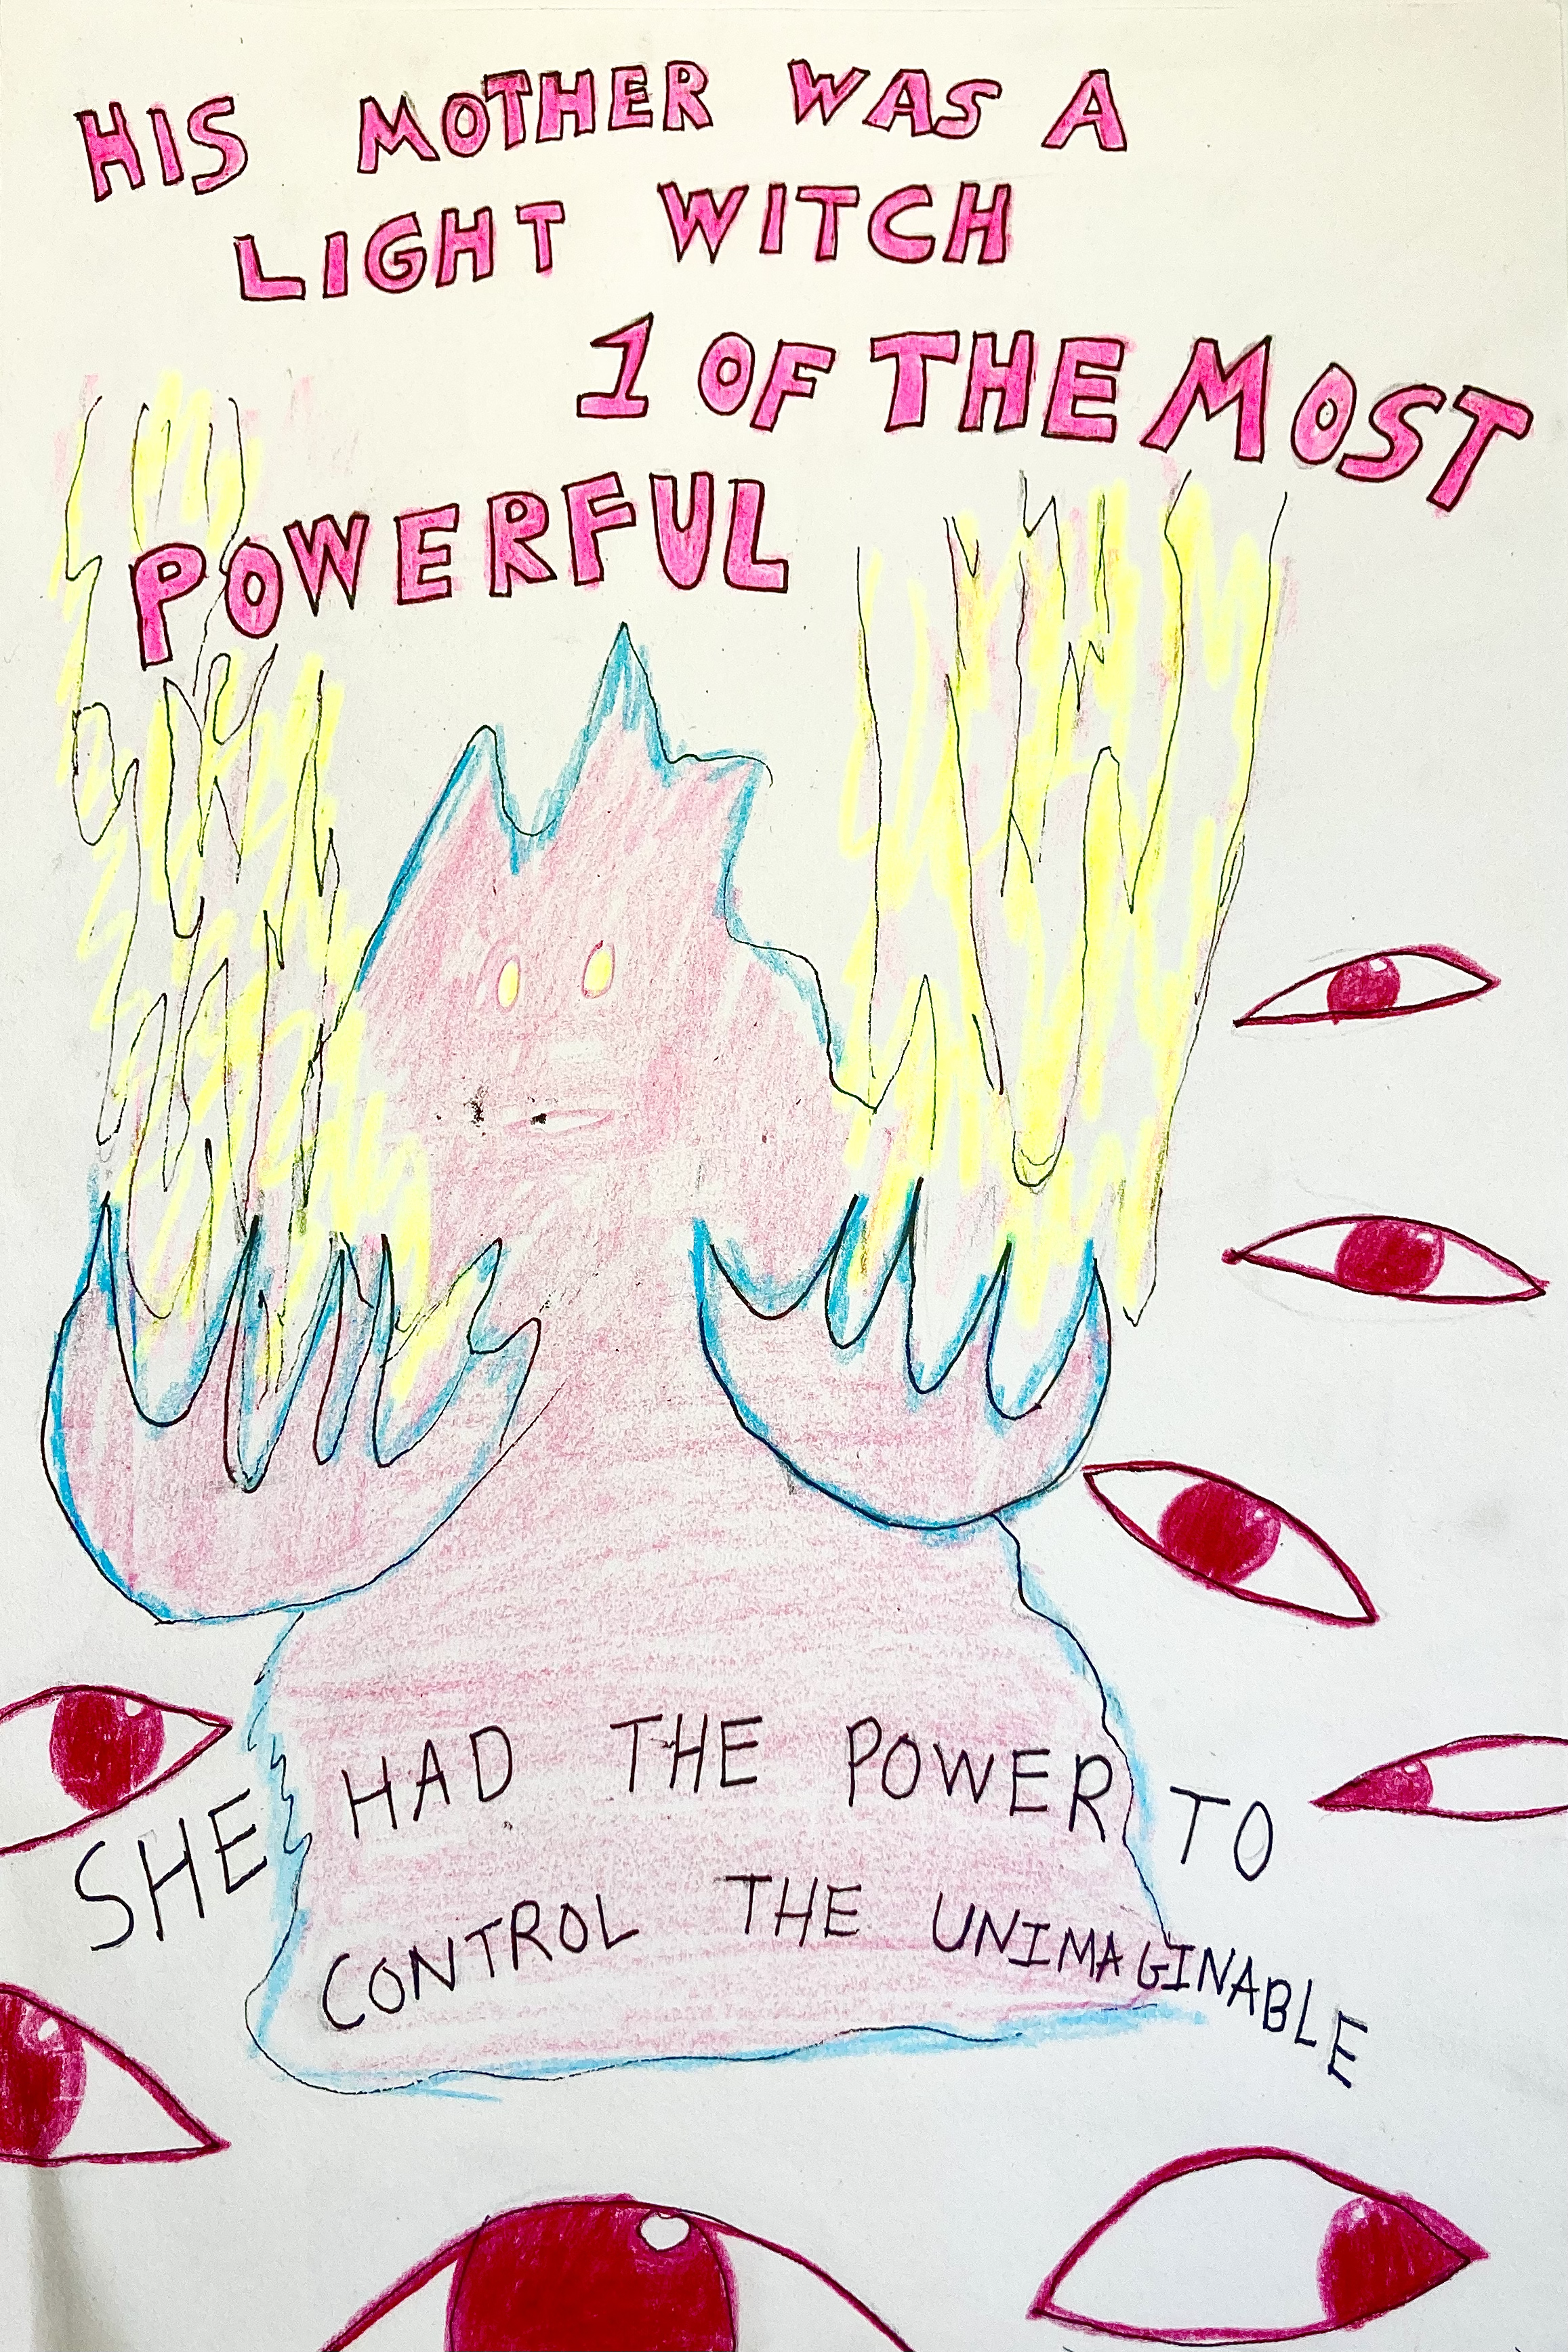 HIS MOTHER WAS A
LIGHT WITCH
1 OF THE MOST
POWERFUL
SHE HAD THE POWER TO
CONTROL THE UNIMAGINABLE